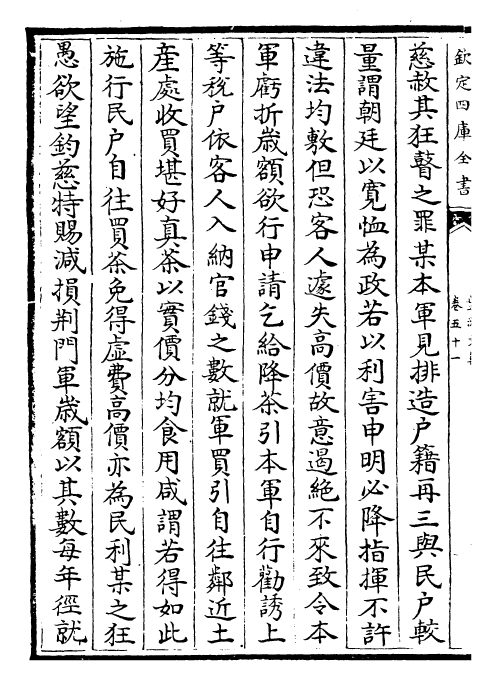 欽定四庫全書
卷五十一
慈赦其狂瞽之罪某本軍見排造户籍再三與民户較
量謂朝廷以寛恤為政若以利害申明必降指揮不許
違法均敷但恐客人遽失高價故意遏絶不來致令本
軍虧折歳額欲行申請乞給降茶引本軍自行勸誘上
等税户依客人入納官錢之數就軍買引自往鄰近土
産處收買堪好真茶以實價分均食用咸謂若得如此
施行民户自往買茶免得虛費高價亦為民利某之狂
愚欲望鈞慈特賜減損荆門軍歳額以其數每年徑就